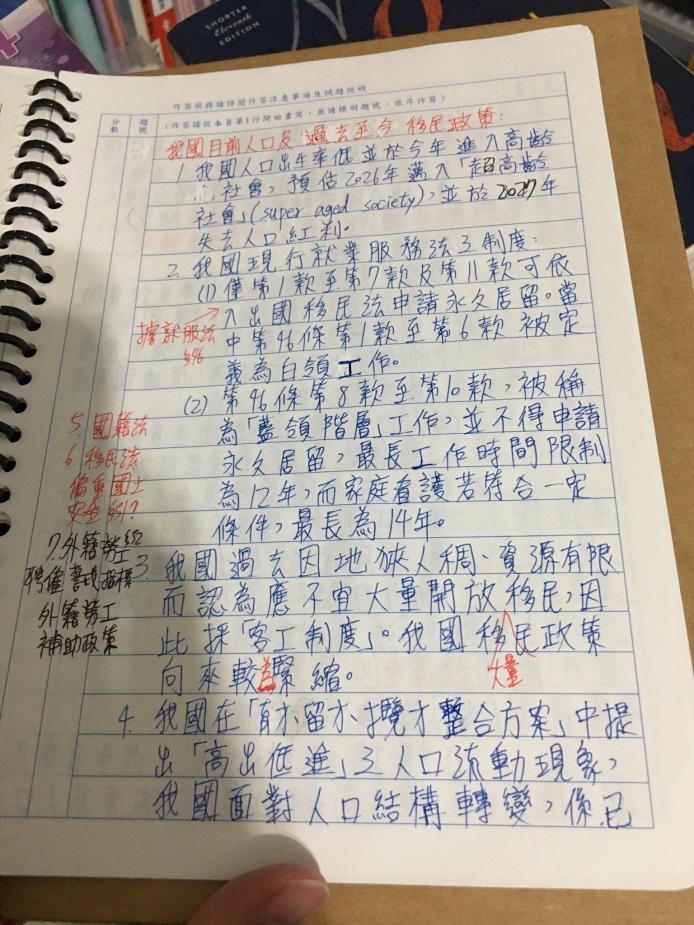 SHORTER
Eleventh
EDITION
作答前務請詳閱作答注意事項及試題說明
分數
題號
(作答請從本頁第1行開始書寫，並請標明題號，依序作答)
我國目前人口及過去至今移民政策:
1. 我國人口出生率低並於今年進入高齡
社會，預估2026年邁入「超高齡
社會」(super aged society)，並於2027年
失去人口紅利。
2. 我國現行就業服務法之制度:
(1) 僅第1款至第7款及第11款可依
入出國移民法申請永久居留。當
據就服法
§46
中第46條第1款至第6款被定
義為白領工作。
(2) 第46條第8款至第10款，被稱
為「藍領階層」工作，並不得申請
永久居留，最長工作時間限制
為12年，而家庭看護若符合一定
條件，最長為14年。
5. 國籍法
6. 移民法
偏重國土
安全 §51?
7. 外籍勞工
聘僱警戒指標
外籍勞工
補助政策
3. 我國過去因地狹人稠、資源有限
而認為應不宜大量開放移民，因
此採「客工制度」。我國移民政策
大量
向來較為緊縮。
4. 我國在「育才、留才、攬才整合方案」中提
出「高出低進」之人口流動現象，
我國面對人口結構轉變，係已